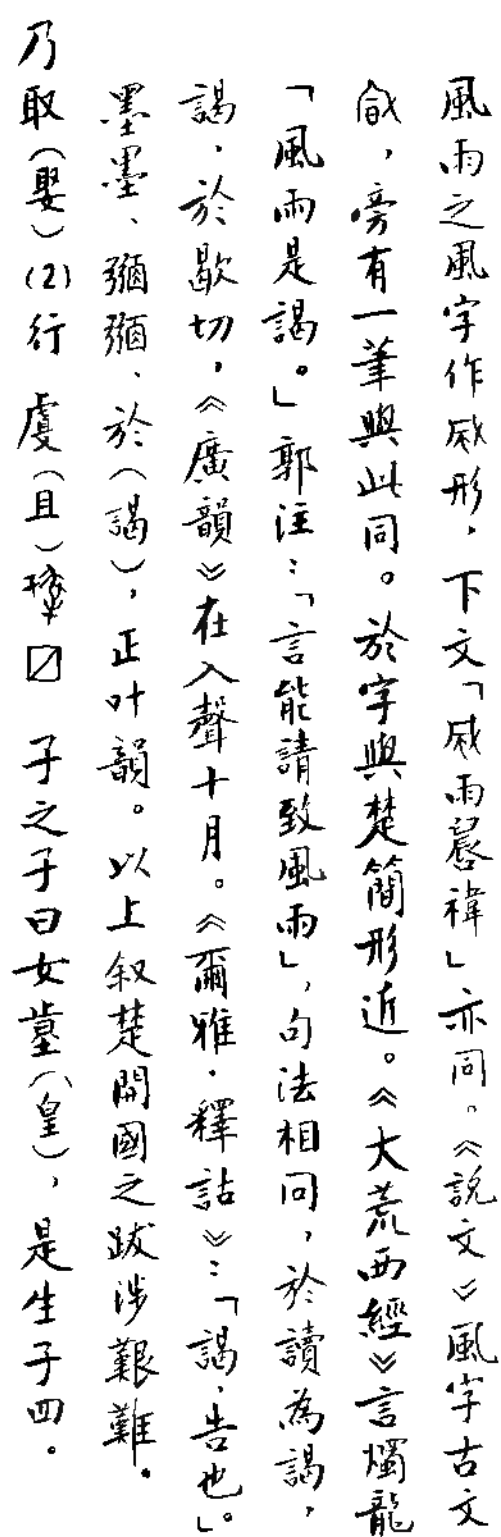 風雨之風字作𢦏形，下文「𢦏雨晷禕」亦同。《說文》風字古文
，旁有一筆與此同。於字與楚簡形近。《大荒西經》言燭龍
「風雨是謁。」郭注：「言能請致風雨」，句法相同，於讀為謁，
謁，於歇切，《廣韻》在入聲十月。《爾雅．釋詁》：「謁，告也」。
墨墨、獼獼、於（謁），正叶韻。以上叙楚開國之跋涉艱難。
乃取（娶）(2)行 虘（且）〼 子之子曰女𡔈（皇），是生子四。